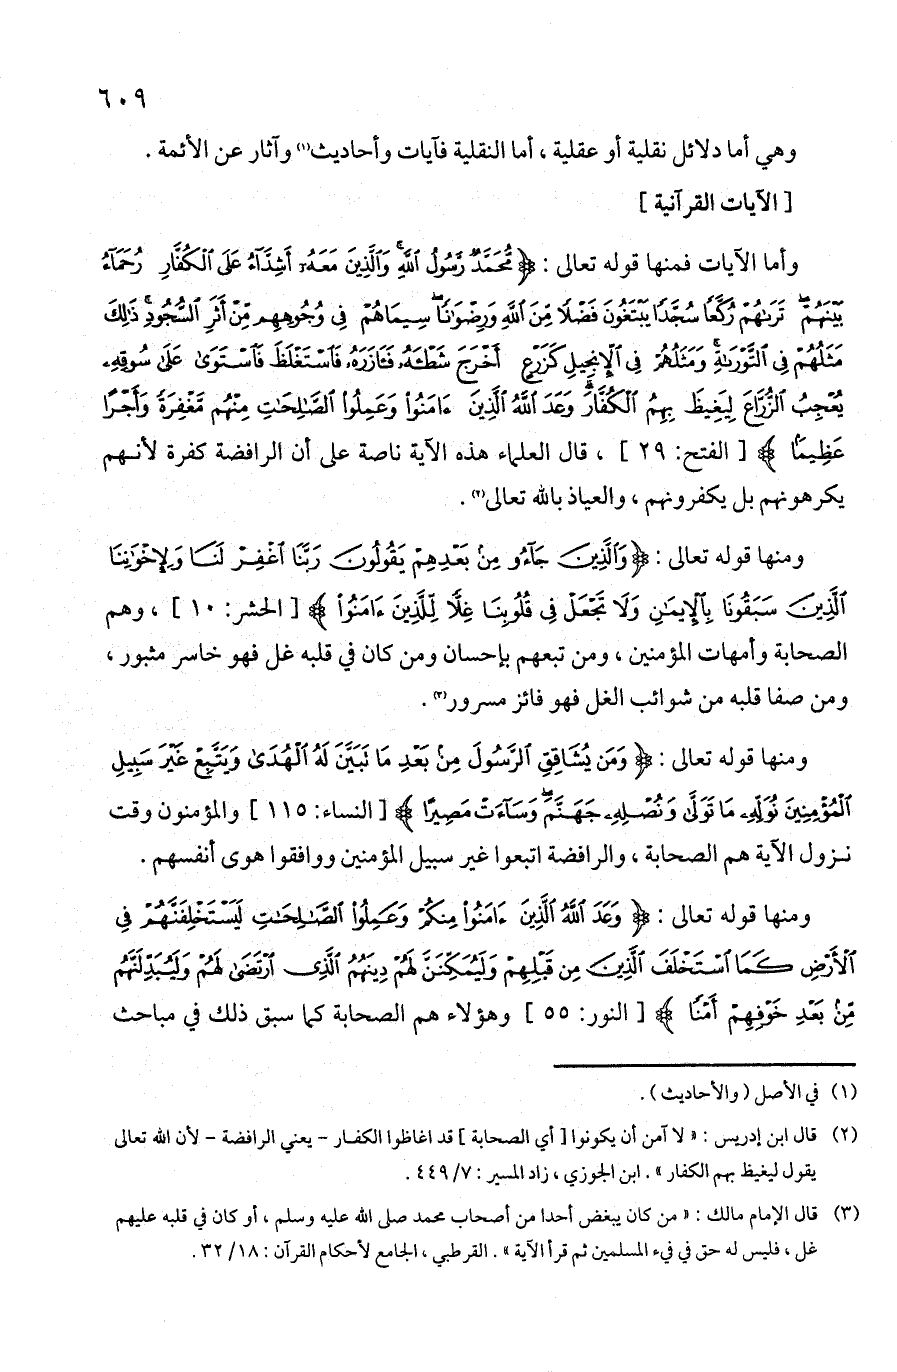 ٦٠٩
وهي أما دلائل نقلية أو عقلية ، أما النقلية فآيات وأحاديث(١) وآثار عن الأئمة .
[ الآيات القرآنية ]
وأما الآيات فمنها قوله تعالى : ﴿ مُّحَمَّدٌ رَّسُولُ ٱللَّهِ ۚ وَٱلَّذِينَ مَعَهُۥٓ أَشِدَّآءُ عَلَى ٱلْكُفَّارِ رُحَمَآءُ
بَيْنَهُمْ ۖ تَرَىٰهُمْ رُكَّعًا سُجَّدًا يَبْتَغُونَ فَضْلًا مِّنَ ٱللَّهِ وَرِضْوَٰنًا ۖ سِيمَاهُمْ فِى وُجُوهِهِم مِّنْ أَثَرِ ٱلسُّجُودِ ۚ ذَٰلِكَ
مَثَلُهُمْ فِى ٱلتَّوْرَىٰةِ ۚ وَمَثَلُهُمْ فِى ٱلْإِنجِيلِ كَزَرْعٍ أَخْرَجَ شَطْـَٔهُۥ فَـَٔازَرَهُۥ فَٱسْتَغْلَظَ فَٱسْتَوَىٰ عَلَىٰ سُوقِهِۦ
يُعْجِبُ ٱلزُّرَّاعَ لِيَغِيظَ بِهِمُ ٱلْكُفَّارَ ۗ وَعَدَ ٱللَّهُ ٱلَّذِينَ ءَامَنُوا۟ وَعَمِلُوا۟ ٱلصَّـٰلِحَـٰتِ مِنْهُم مَّغْفِرَةً وَأَجْرًا
عَظِيمًۢا ﴾ [ الفتح: ٢٩ ] ، قال العلماء هذه الآية ناصة على أن الرافضة كفرة لأنـهم
يكرهونهم بل يكفرونهم ، والعياذ بالله تعالى(٢) .
ومنها قوله تعالى : ﴿ وَٱلَّذِينَ جَآءُو مِنۢ بَعْدِهِمْ يَقُولُونَ رَبَّنَا ٱغْفِرْ لَنَا وَلِإِخْوَٰنِنَا
ٱلَّذِينَ سَبَقُونَا بِٱلْإِيمَـٰنِ وَلَا تَجْعَلْ فِى قُلُوبِنَا غِلًّا لِّلَّذِينَ ءَامَنُوا۟ ﴾ [ الحشر: ١٠ ] ، وهم
الصحابة وأمهات المؤمنين ، ومن تبعهم بإحسان ومن كان في قلبه غل فهو خاسر مثبور ،
ومن صفا قلبه من شوائب الغل فهو فائز مسرور(٣) .
ومنها قوله تعالى : ﴿ وَمَن يُشَاقِقِ ٱلرَّسُولَ مِنۢ بَعْدِ مَا تَبَيَّنَ لَهُ ٱلْهُدَىٰ وَيَتَّبِعْ غَيْرَ سَبِيلِ
ٱلْمُؤْمِنِينَ نُوَلِّهِۦ مَا تَوَلَّىٰ وَنُصْلِهِۦ جَهَنَّمَ ۖ وَسَآءَتْ مَصِيرًا ﴾ [ النساء: ١١٥ ] والمؤمنون وقت
نـزول الآية هم الصحابة ، والرافضة اتبعوا غير سبيل المؤمنين ووافقوا هوى أنفسهم .
ومنها قوله تعالى : ﴿ وَعَدَ ٱللَّهُ ٱلَّذِينَ ءَامَنُوا۟ مِنكُمْ وَعَمِلُوا۟ ٱلصَّـٰلِحَـٰتِ لَيَسْتَخْلِفَنَّهُمْ فِى
ٱلْأَرْضِ كَمَا ٱسْتَخْلَفَ ٱلَّذِينَ مِن قَبْلِهِمْ وَلَيُمَكِّنَنَّ لَهُمْ دِينَهُمُ ٱلَّذِى ٱرْتَضَىٰ لَهُمْ وَلَيُبَدِّلَنَّهُم
مِّنۢ بَعْدِ خَوْفِهِمْ أَمْنًا ﴾ [ النور: ٥٥ ] وهؤلاء هم الصحابة كما سبق ذلك في مباحث
(١) في الأصل ( والأحاديث ) .
(٢) قال ابن إدريس : « لا آمن أن يكونوا [ أي الصحابة ] قد اغاظوا الكفـار – يعني الرافضة – لأن الله تعالى
يقول ليغيظ بهم الكفار » . ابن الجوزي ، زاد المسير : ٧/ ٤٤٩ .
(٣) قال الإمام مالك : « من كان يبغض أحدا من أصحاب محمد صلى الله عليه وسلم ، أو كان في قلبه عليهم
غل ، فليس له حق في فيء المسلمين ثم قرأ الآية » . القرطبي ، الجامع لأحكام القرآن : ١٨/ ٣٢ .